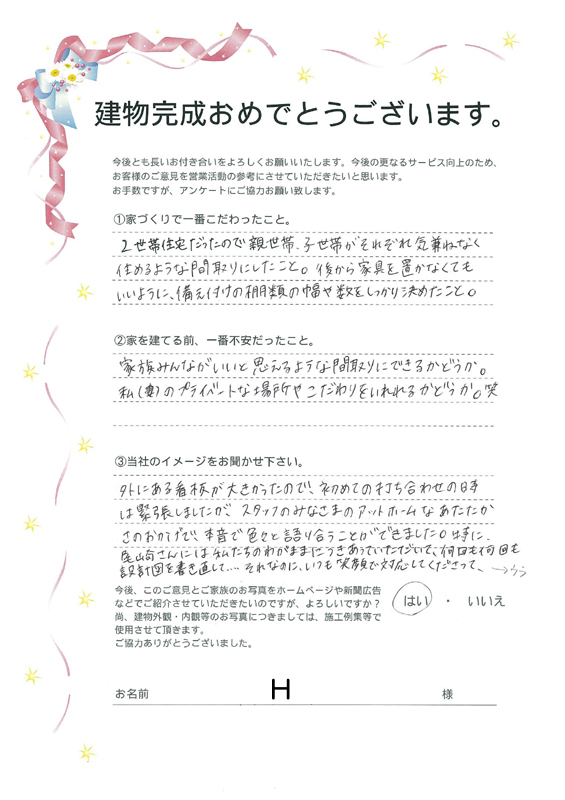 建物完成おめでとうございます。
今後とも長いお付き合いをよろしくお願いいたします。今後の更なるサービス向上のため、
お客様のご意見を営業活動の参考にさせていただきたいと思います。
お手数ですが、アンケートにご協力お願い致します。
①家づくりで一番こだわったこと。
2世帯住宅だったので親世帯、子世帯がそれぞれ気兼ねなく
住めるような間取りにしたこと。後から家具を置かなくても
いいように、備え付けの棚類の幅や数をしっかり決めたこと。
②家を建てる前、一番不安だったこと。
家族みんながいいと思えるような間取りにできるかどうか。
私(妻)のプライベートな場所やこだわりをいれれるかどうか。笑
③当社のイメージをお聞かせ下さい。
外にある看板が大きかったので、初めての打ち合わせの日時
は緊張しましたが、スタッフのみなさまのアットホームなあたたか
さのおかげで、本音で色々と語り合うことができました。特に、
尾山さんには私たちのわがままにつきあっていただいて、何回も何回も
設計図を書き直して…。それなのに、いつも笑顔で対応してくださって、→うら
今後、このご意見とご家族のお写真をホームページや新聞広告
などでご紹介させていただきたいのですが、よろしいですか？ はい ・ いいえ
尚、建物外観・内観等のお写真につきましては、施工例集等で
使用させて頂きます。
ご協力ありがとうございました。
お名前 H 様